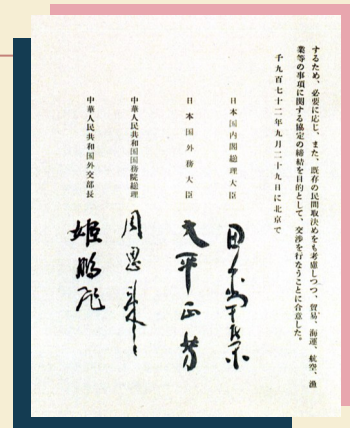 するため、必要に応じ、また、既存の民間取決めをも考慮しつつ、貿易、海運、航空、漁
業等の事項に関する協定の締結を目的として、交渉を行なうことに合意した。
千九百七十二年九月二十九日に北京で
日本国内閣総理大臣
田中角栄
日本国外務大臣
大平正芳
中華人民共和国国務院総理
周恩来
中華人民共和国外交部長
姫鵬飛